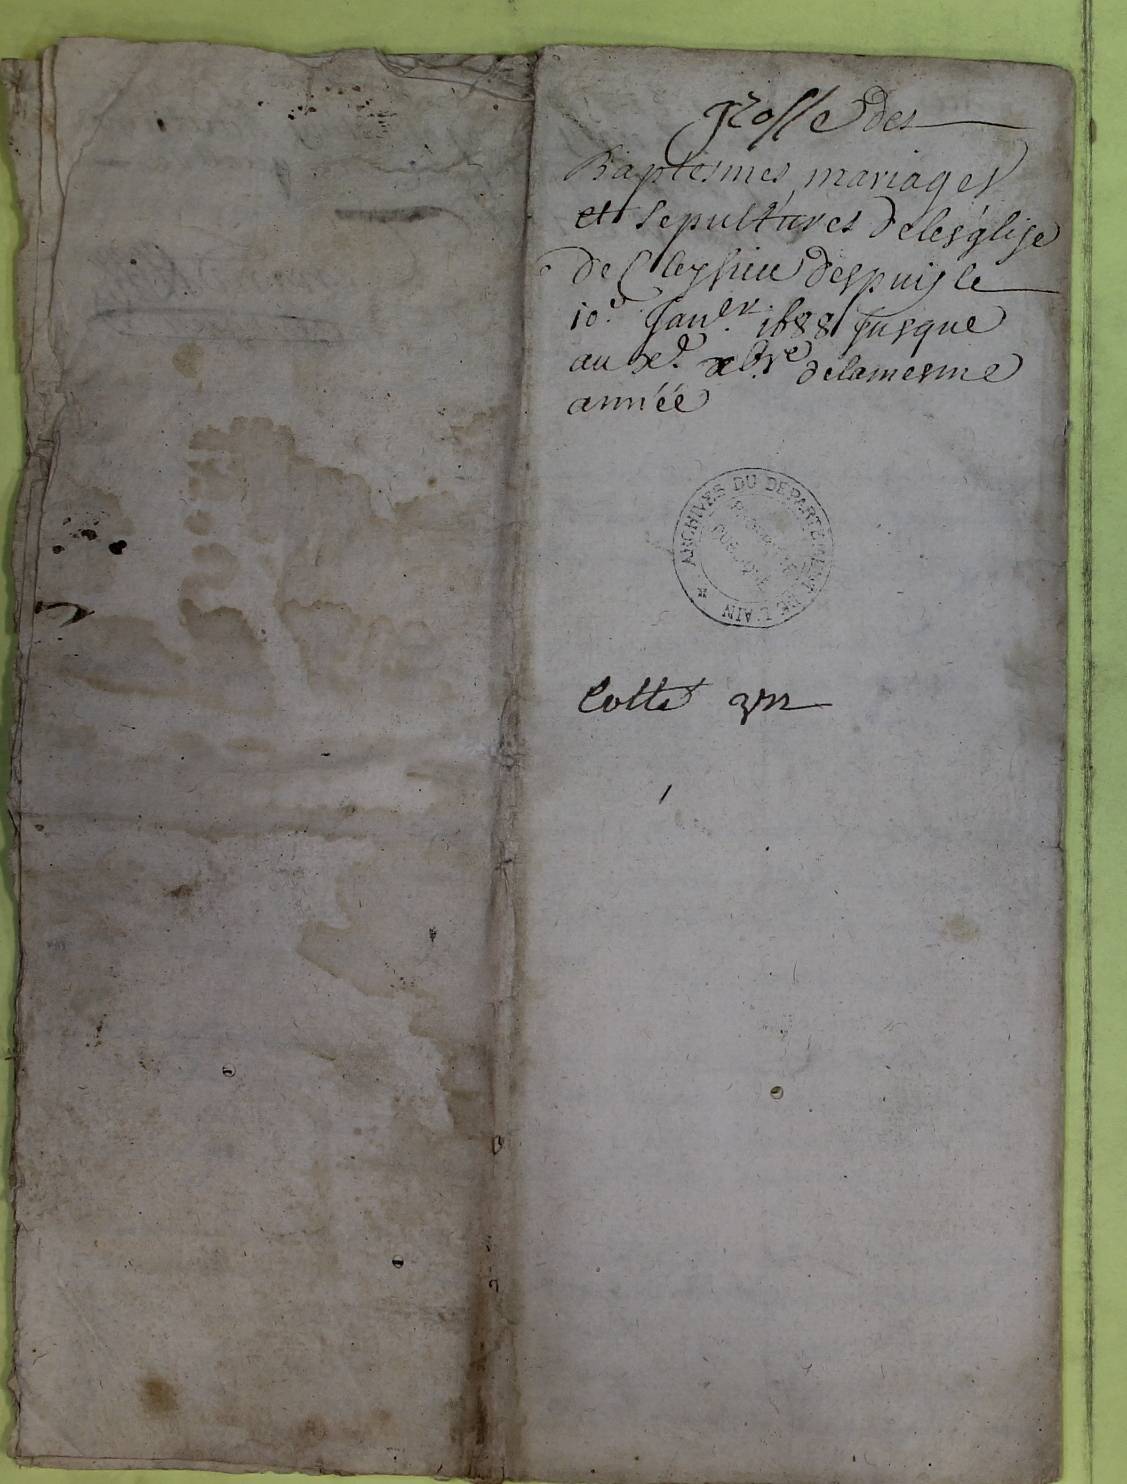 Grosse des
Baptesmes mariages
et sepultures de lesglise
de Cleysieu despuis le
10e. Janer. 1688 jusque
au xe. xbre de la mesme
année
ARCHIVES DU DEPARTEMENT DE L'AIN
Cotté